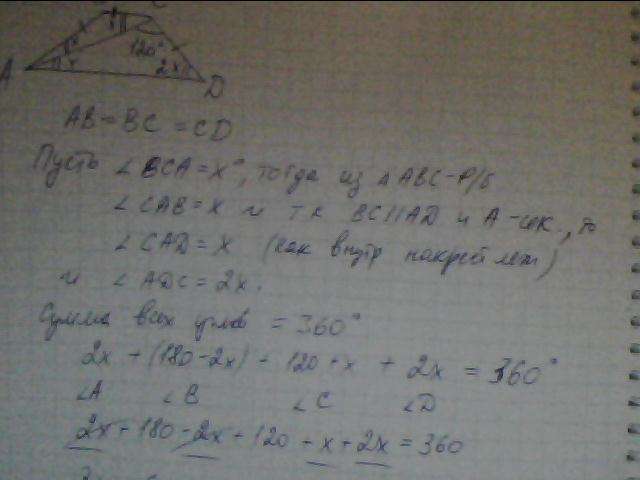 C
A
x
x
120°
2x
D
AB = BC = CD
Пусть ∠BCA = x°, тогда из △ABC - р/б
∠CAB = x и т.к BC || AD и A - сек., то
∠CAD = x (как внутр накрест леж)
и ∠ADC = 2x.
Сумма всех углов = 360°
2x + (180 - 2x) + 120 + x + 2x = 360°
∠A ∠B ∠C ∠D
2x + 180 - 2x + 120 + x + 2x = 360